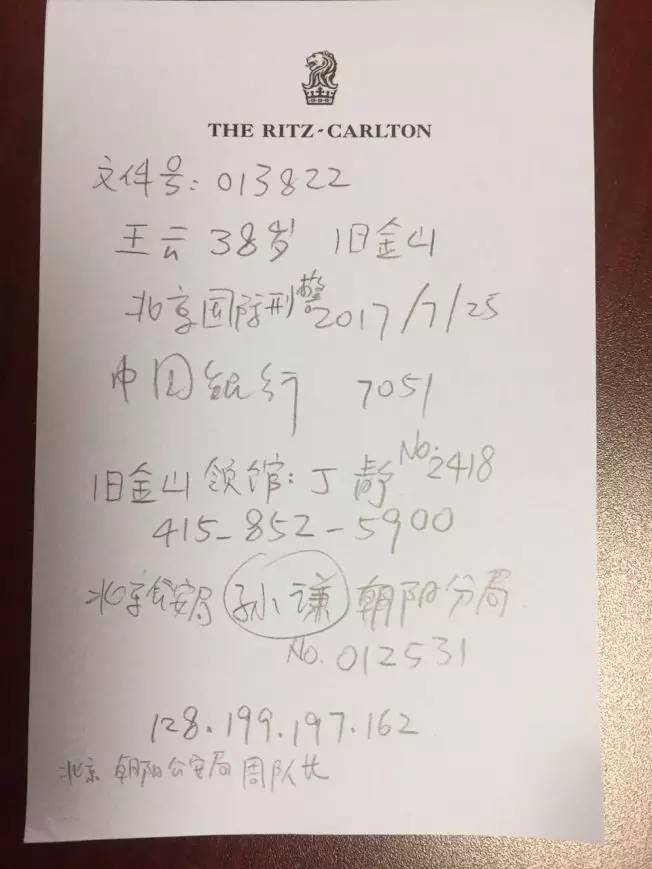 THE RITZ-CARLTON
文件号：013822
王云 38岁 旧金山
北京国际刑警 2017/7/25
中国银行 7051
旧金山领馆：丁静 No.2418
415-852-5900
北京公安局 孙谦 朝阳分局
No. 012531
128.199.197.162
北京朝阳公安局 周队长